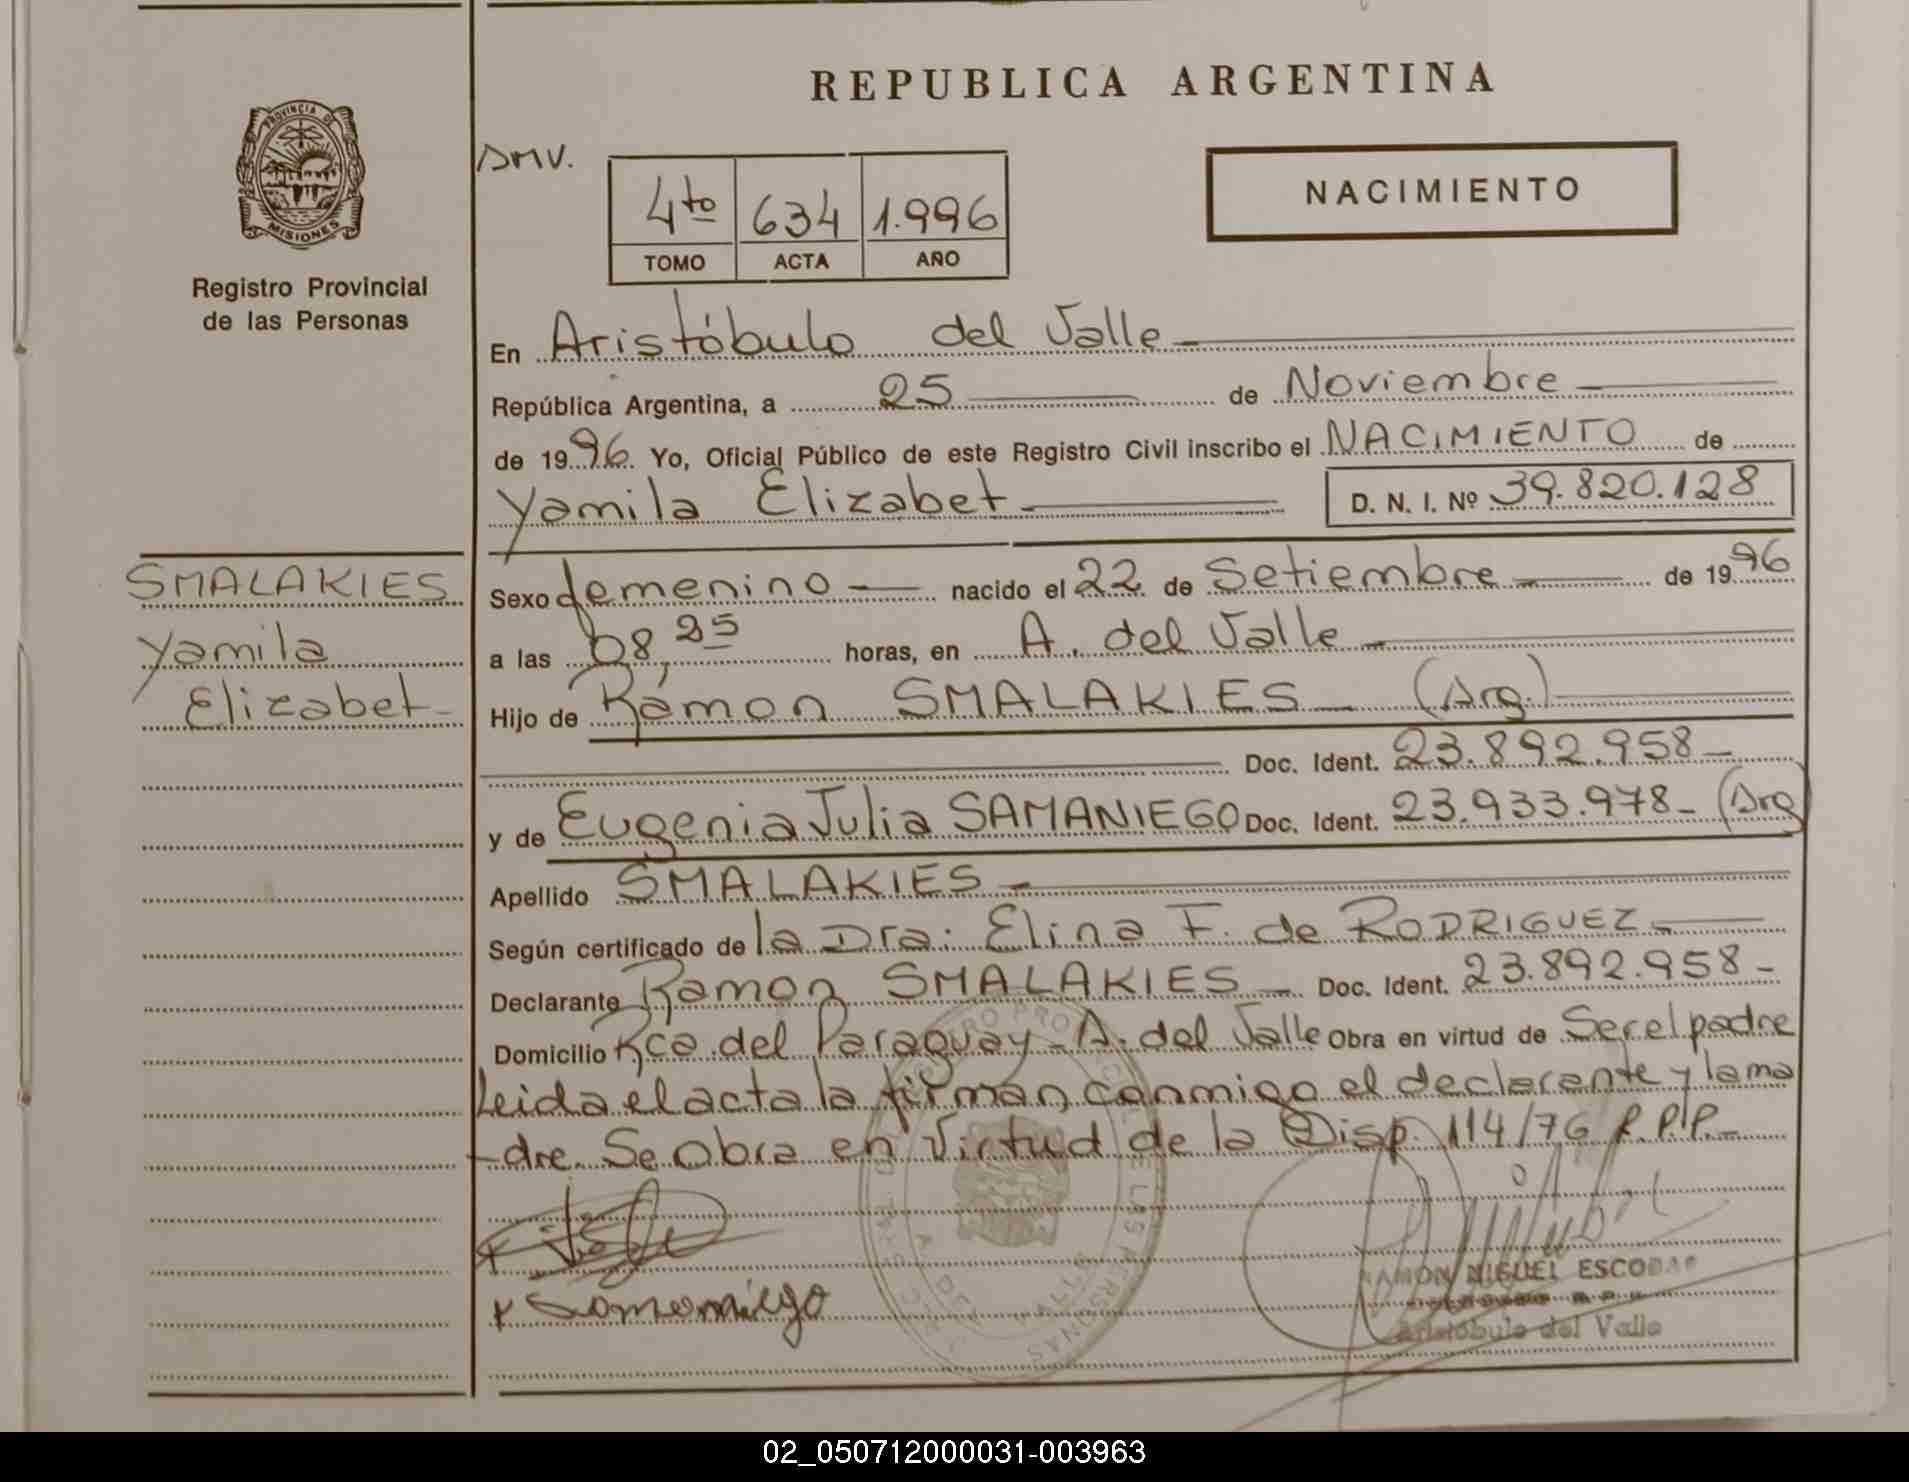 REPUBLICA ARGENTINA
PROVINCIA DE
MISIONES
Registro Provincial
de las Personas
DMV.
4to 634 1.996
TOMO ACTA AÑO
NACIMIENTO
En Aristóbulo del Valle
República Argentina, a 25 de Noviembre
de 1996 Yo, Oficial Público de este Registro Civil inscribo el NACIMIENTO de
Yamila Elizabet D. N. I. Nº 39.820.128
SMALAKIES
Yamila
Elizabet
Sexo femenino nacido el 22 de Setiembre de 1996
a las 08,25 horas, en A. del Valle
Hijo de Ramon SMALAKIES (Arg.)
Doc. Ident. 23.892.958
y de Eugenia Julia SAMANIEGO Doc. Ident. 23.933.978 (Arg
Apellido SMALAKIES
Según certificado de la Dra. Elina F. de RODRIGUEZ
Declarante Ramon SMALAKIES Doc. Ident. 23.892.958
Domicilio Rca. del Paraguay - A. del Valle Obra en virtud de Ser el padre
Leida el acta la firman conmigo el declarante y la ma
-dre. Se obra en virtud de la Disp. 114/76 R.P.P.
x Samaniego
RAMON MIGUEL ESCOBAR
Aristóbulo del Valle
02_050712000031-003963